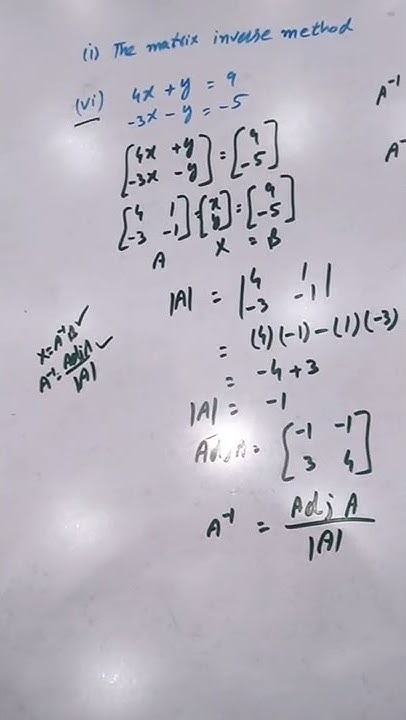 (i) The matrix inverse method
(vi) 4x + y = 9
-3x - y = -5
[4x +y
-3x -y] = [9
-5]
[4 1
-3 -1] [x
y] = [9
-5]
A X = B
|A| = |4 1
-3 -1|
= (4)(-1) - (1)(-3)
= -4 + 3
|A| = -1
Adj A = [-1 -1
3 4]
A⁻¹ = Adj A / |A|
X = A⁻¹B ✓
A⁻¹ = Adj A / |A| ✓
A⁻¹
A⁻